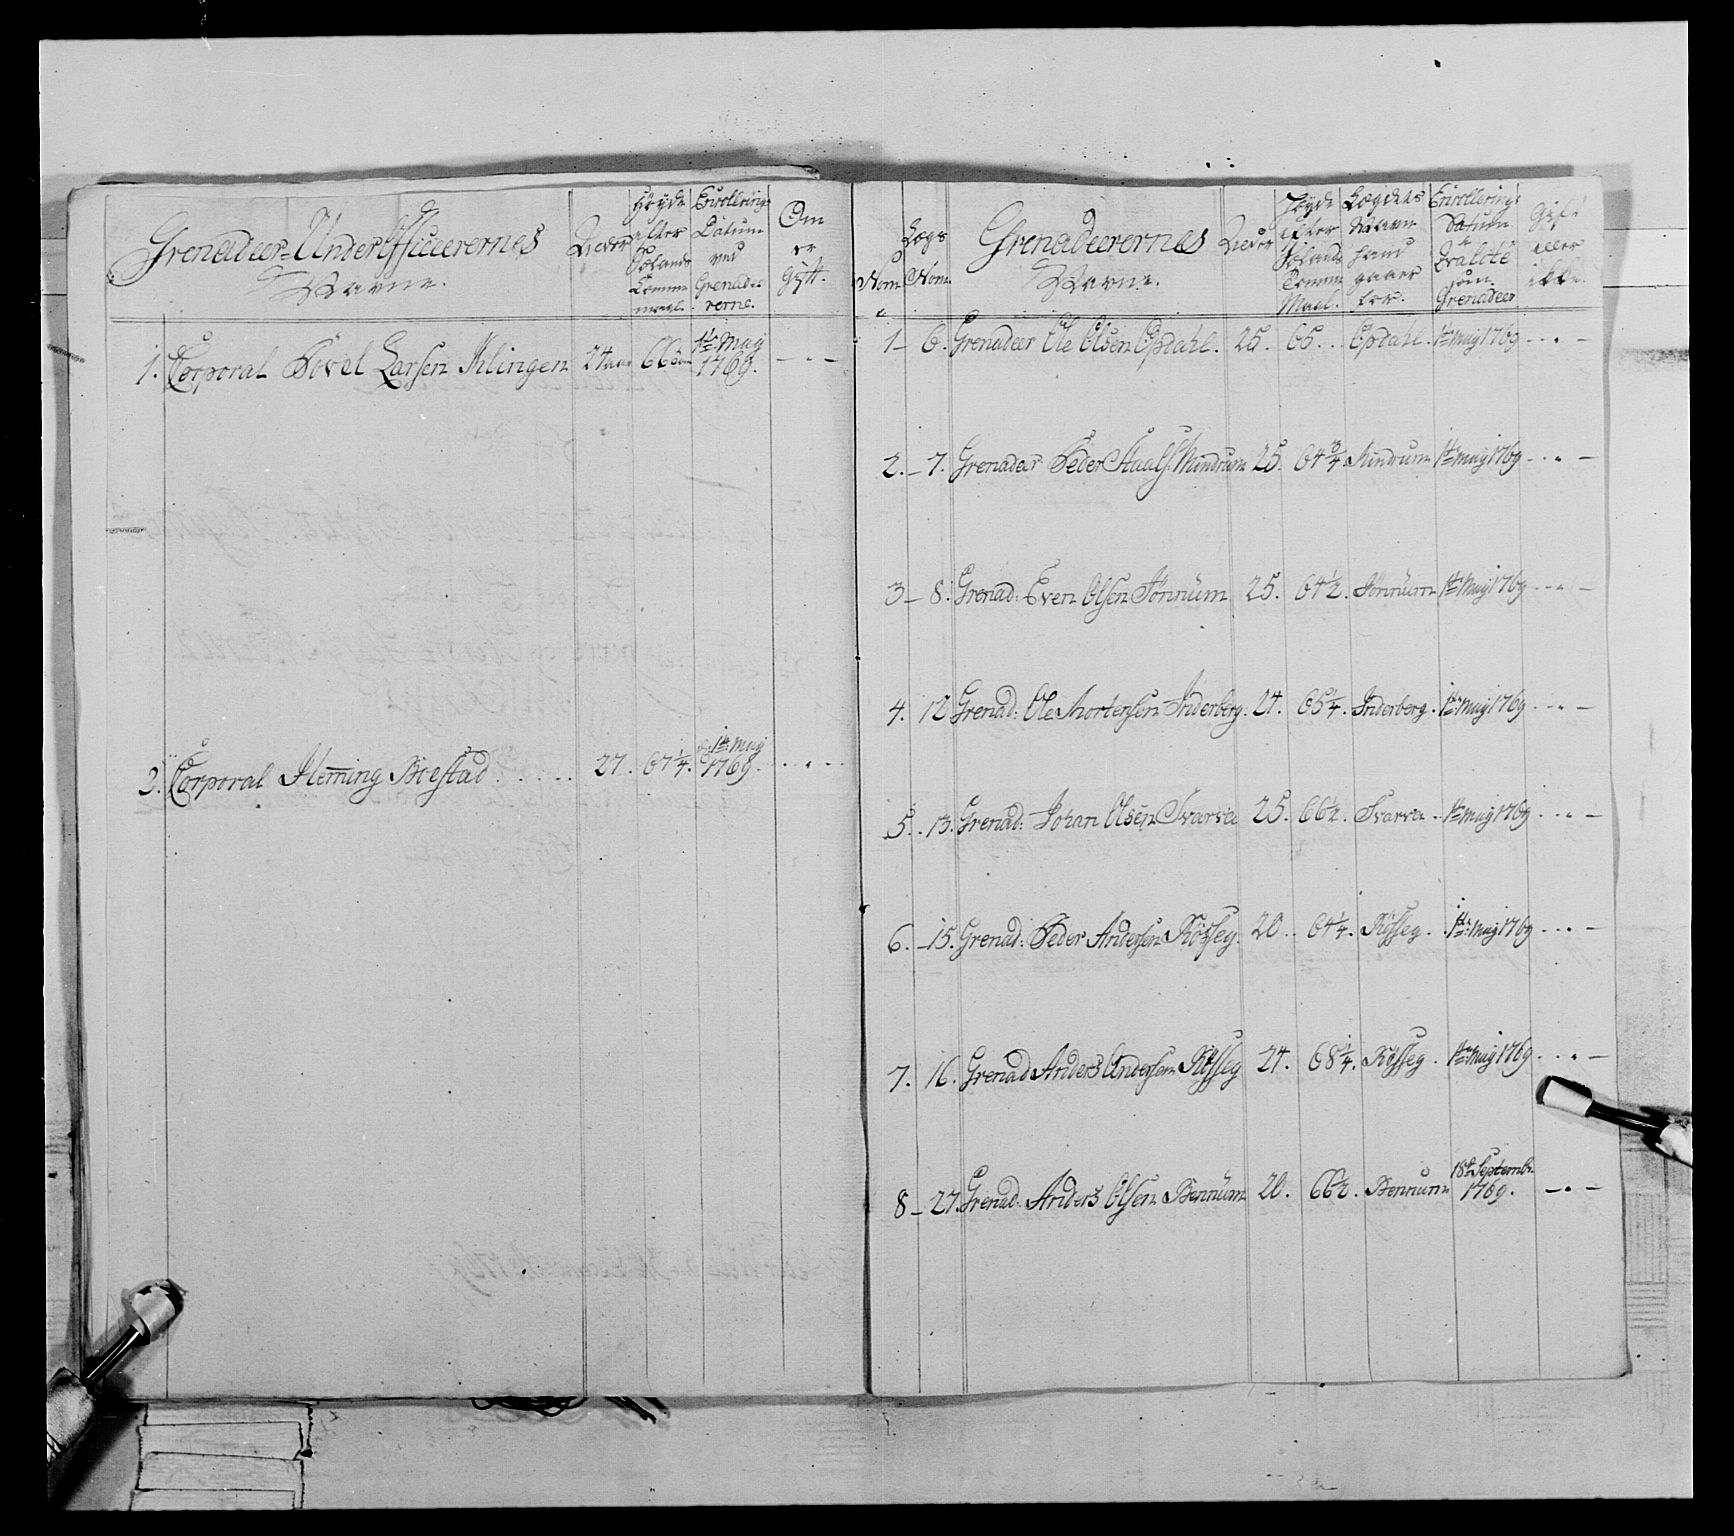 Grenadeer-Underofficeerernes
Navne.
Alder
Høyde
efter
Sølands
Tomme
maal.
Enrollerings
Datum
ved
Grenadee
rerne.
Om
er
Gift.
1. Corporal Povel Larsen Hilingen 24 aar 66 1te May 1769. - " -
2. Corporal Flemming Boestad 27. 67 1/4. 1te May 1769. - " -
Nom
Lægs
Nom.
Grenadeerernes
Navne.
Alder
Høyde
efter
Sølands
Tomme
Maal.
Lægdets
Navn
hand
gaaer
for.
Enrollerings
Datum
i
qvalité
som
Grenadeer
Gift
eller
ikke.
1 - 6. Grenadeer Ole Olsen Opdahl. 25. 65. Opdahl. 1te May 1769 - " -
2. - 7. Grenadeer Peder Mindrum 25. 64 3/4 Mindrum 1te May 1769 - " -
3 - 8. Grenad: Even Olsen Tønnüm 25. 64 1/2. Tønnüm 1te May 1769 - " -
4. 12 Grenad: Ole Mortensen Inderberg. 24. 65 1/4. Inderberg. 1te May 1769 - " -
5. 13. Grenad: Johan Olsen Svarva 25. 66 1/2. Svarva 1te May 1769 - " -
6. - 15. Grenad: Peder Andersen Røsseg. 20. 64 1/4. Røsseg. 1te May 1769 - " -
7. 16. Grenad Anders Andersen Røsseg 24. 68 1/4. Røsseg. 1te May 1769 - " -
8 - 27. Grenad: Anders Olsen Bennüm 20. 66 1/2. Bennum 18de Septembr. 1769. - " -